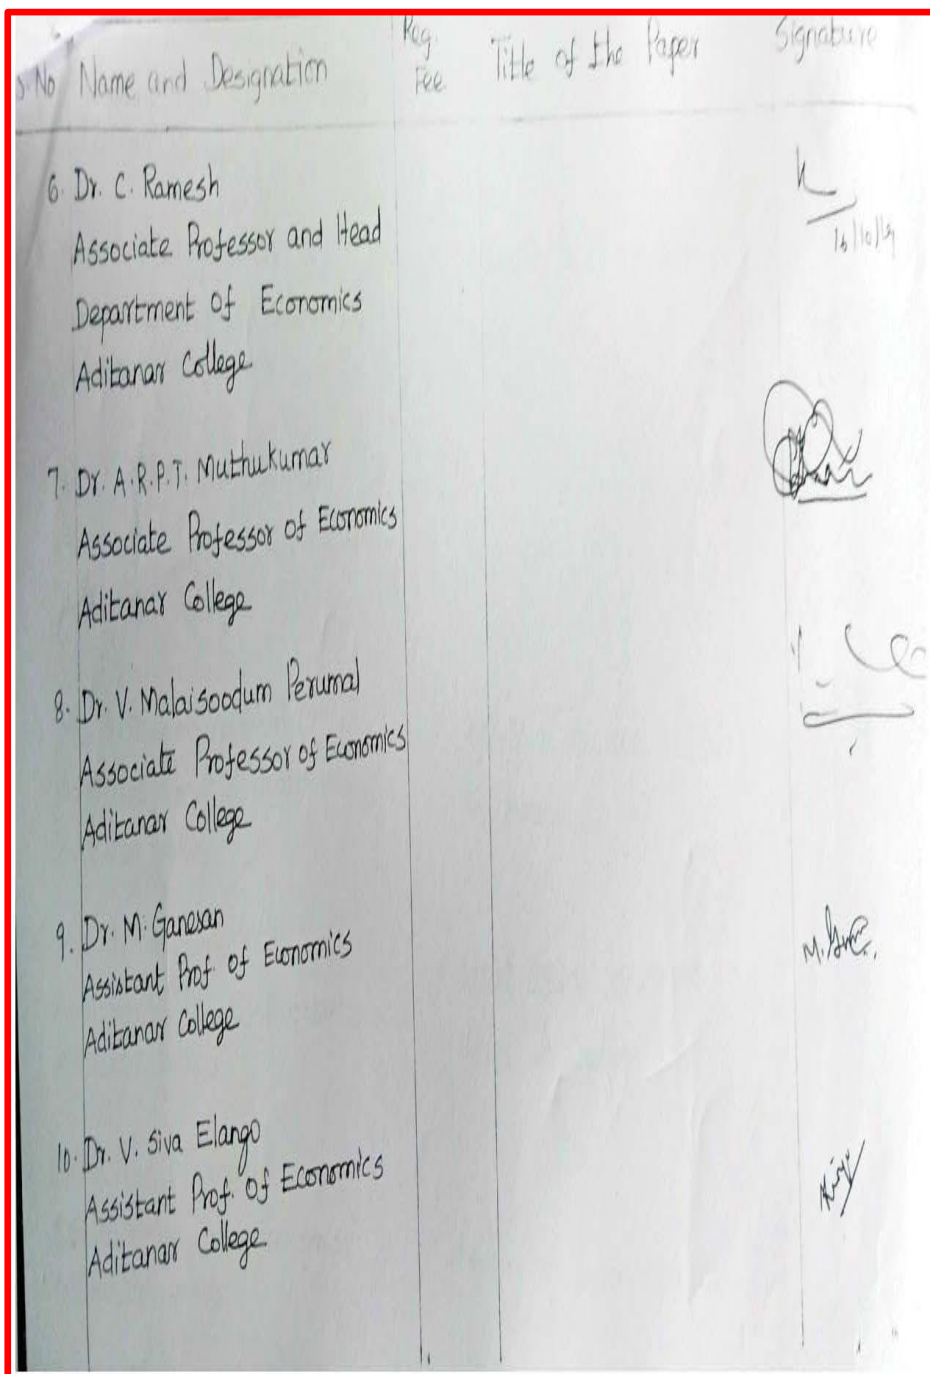 S.No Name and Designation Reg. Fee. Title of the Paper Signature
6. Dr. C. Ramesh
Associate Professor and Head
Department of Economics
Aditanar College
7. Dr. A.R.P.T. Muthukumar
Associate Professor of Economics
Aditanar College
8. Dr. V. Malaisoodum Perumal
Associate Professor of Economics
Aditanar College
9. Dr. M. Ganesan
Assistant Prof. of Economics
Aditanar College
M.
10. Dr. V. Siva Elango
Assistant Prof. of Economics
Aditanar College